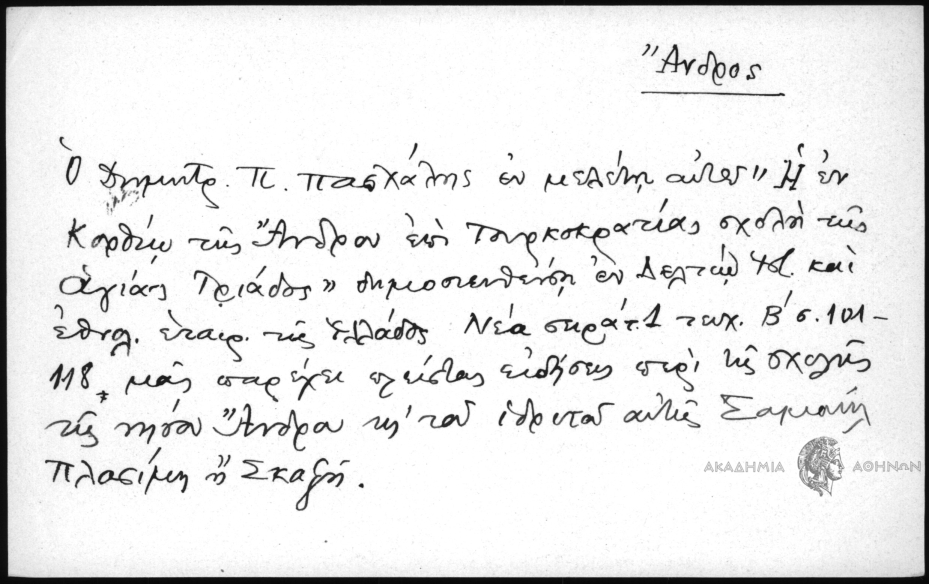 Ἄνδρος
Ὁ Δημητρ. Π. Πασχάλης ἐν μελέτῃ αὐτοῦ "Ἡ ἐν
Κορθίῳ τῆς Ἄνδρου ἐπὶ Τουρκοκρατίας σχολὴ τῆς
Ἁγίας Τριάδος" δημοσιευθείσῃ ἐν Δελτίῳ Ἱστ. καὶ
ἐθνολ. ἑταιρ. τῆς Ἑλλάδος Νέα σειρά τ. 1 τευχ. Β' σ. 101-
118, μᾶς παρέχει πλείστας εἰδήσεις περὶ τῆς σχολῆς
τῆς νήσου Ἄνδρου κ' τοῦ ἱδρυτοῦ αὐτῆς Σαμουὴλ
Πλασίμη ἢ Σκαζῆ.
ΑΚΑΔΗΜΙΑ ΑΘΗΝΩΝ